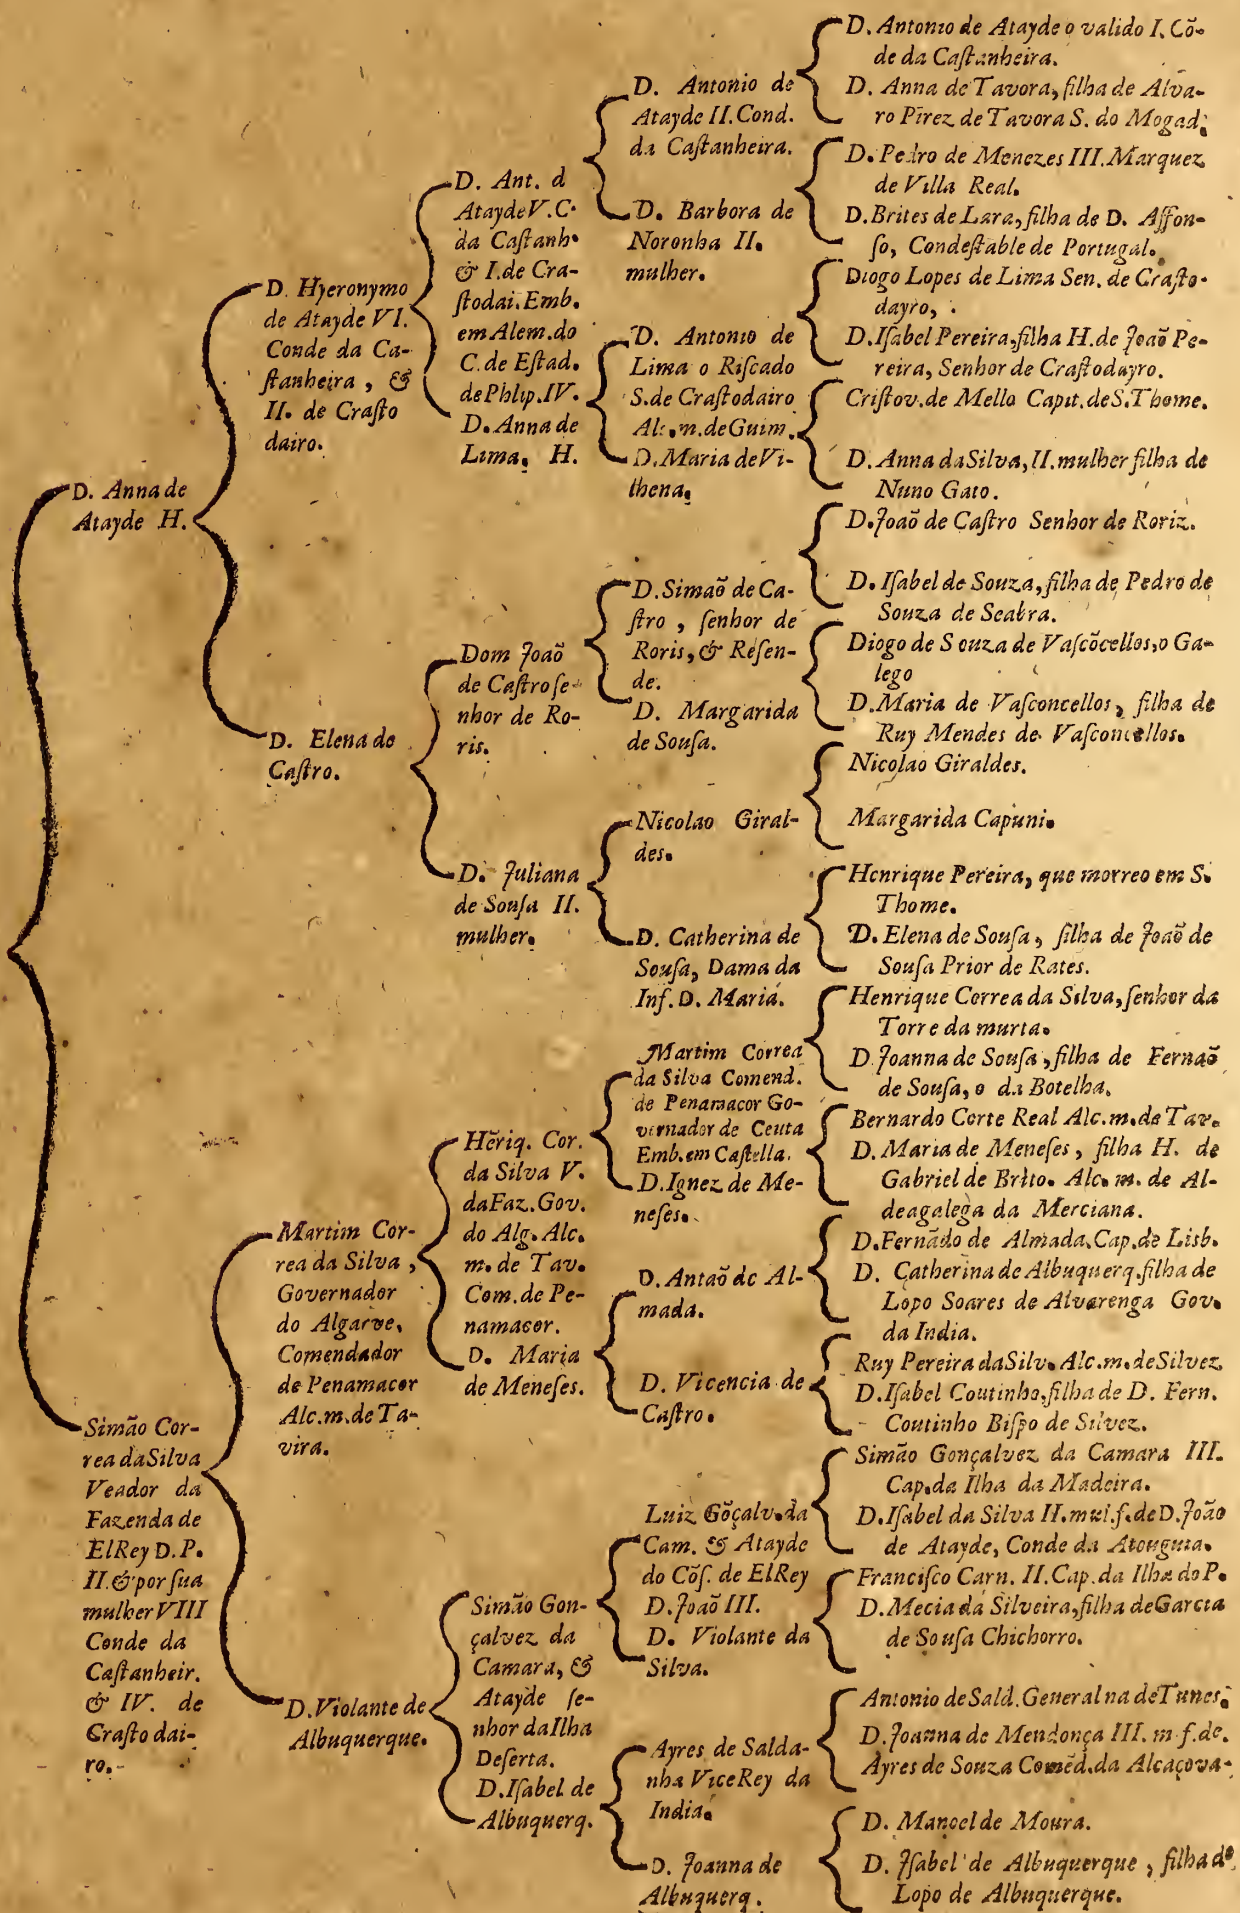 D. Anna de
Atayde H.
Simão Cor-
rea da Silva
Veador da
Fazenda de
ElRey D. P.
II. & por sua
mulher VIII
Conde da
Caſtanheir.
& IV. de
Craſto dai-
ro.
D. Hyeronymo
de Atayde VI.
Conde da Ca-
ſtanheira, &
II. de Craſto
dairo.
D. Elena de
Caſtro.
Martim Cor-
rea da Silva,
Governador
do Algarve,
Comendador
de Penamacor
Alc.m.de Ta-
vira.
D.Violante de
Albuquerque.
D. Ant. d
Atayde V.C.
da Caſtanh.
& I.de Cra-
ſtodai.Emb.
em Alem.do
C. de Eſtad.
de Phlip.IV.
D.Anna de
Lima, H.
Dom Joaõ
de Caſtro ſe-
nhor de Ro-
ris.
D. Juliana
de Souſa II.
mulher.
Hẽriq. Cor.
da Silva V.
da Faz.Gov.
do Alg. Alc.
m. de Tav.
Com.de Pe-
namacor.
D. Maria
de Meneſes.
Simão Gon-
çalvez da
Camara, &
Atayde ſe-
nhor da Ilha
Deſerta.
D.Iſabel de
Albuquerq.
D. Antonio de
Atayde II.Cond.
da Caſtanheira.
D. Barbora de
Noronha II.
mulher.
D. Antonio de
Lima o Riſcado
S.de Craſtodairo
Alc.m.de Guim.
D.Maria de Vi-
lhena.
D.Simaõ de Ca-
ſtro, ſenhor de
Roris, & Reſen-
de.
D. Margarida
de Souſa.
Nicolao Giral-
des.
D. Catherina de
Souſa, Dama da
Inf. D. Maria.
Martim Correa
da Silva Comend.
de Penamacor Go-
vernador de Ceuta
Emb.em Caſtella.
D.Ignez de Me-
neſes.
D. Antaõ de Al-
mada.
D. Vicencia de
Caſtro.
Luiz Gõçalv.da
Cam. & Atayde
do Cõſ. de ElRey
D. Joaõ III.
D. Violante da
Silva.
Ayres de Salda-
nha ViceRey da
India.
D. Joanna de
Albuquerq.
D. Antonio de Atayde o valido I. Cõ-
de da Caſtanheira.
D. Anna de Tavora, filha de Alva-
ro Pirez de Tavora S. do Mogad.
D. Pedro de Menezes III.Marquez
de Villa Real.
D.Brites de Lara, filha de D. Affon-
ſo, Condeſtable de Portugal.
Diogo Lopes de Lima Sen. de Craſto-
dayro,
D.Iſabel Pereira, filha H.de Joaõ Pe-
reira, Senhor de Craſtodayro.
Criſtov.de Mello Capit.de S.Thome.
D. Anna da Silva, II.mulher filha de
Nuno Gato.
D.Joaõ de Caſtro Senhor de Roriz.
D. Iſabel de Souza, filha de Pedro de
Souza de Seabra.
Diogo de Souza de Vaſcõcellos, o Ga-
lego
D.Maria de Vaſconcellos, filha de
Ruy Mendes de Vaſconcellos.
Nicolao Giraldes.
Margarida Capuni.
Henrique Pereira, que morreo em S.
Thome.
D. Elena de Souſa, filha de Joaõ de
Souſa Prior de Rates.
Henrique Correa da Silva, ſenhor da
Torre da murta.
D.Joanna de Souſa, filha de Fernaõ
de Souſa, o da Botelha.
Bernardo Corte Real Alc.m.de Tav.
D. Maria de Meneſes, filha H. de
Gabriel de Brito. Alc. m. de Al-
deagalega da Merciana.
D.Fernãdo de Almada, Cap.de Lisb.
D. Catherina de Albuquerq.filha de
Lopo Soares de Alvarenga Gov.
da India.
Ruy Pereira da Silv. Alc.m.de Silvez
D.Iſabel Coutinho, filha de D. Fern.
Coutinho Biſpo de Silvez.
Simão Gonçalvez da Camara III.
Cap.da Ilha da Madeira.
D.Iſabel da Silva II.mul.f.de D.Joaõ
de Atayde, Conde da Atouguia.
Franciſco Carn. II.Cap.da Ilha do P.
D. Mecia da Silveira, filha de Garcia
de Souſa Chichorro.
Antonio de Sald.General na de Tunes.
D.Joanna de Mendonça III. m f.de.
Ayres de Souza Comẽd.da Alcaçova.
D. Manoel de Moura.
D. Iſabel de Albuquerque, filha de
Lopo de Albuquerque.